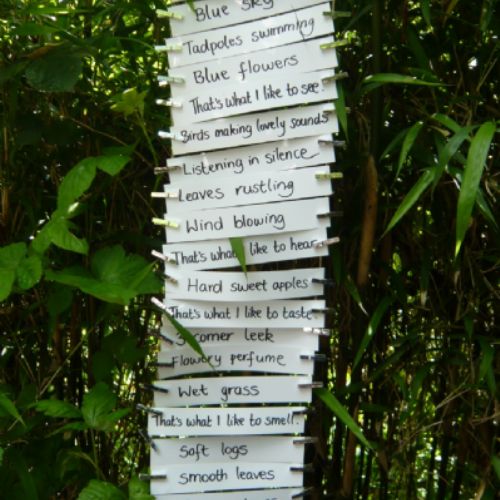 Blue sky
Tadpoles swimming
Blue flowers
That's what I like to see!
Birds making lovely sounds
Listening in silence
Leaves rustling
Wind blowing
That's what like to hear
Hard sweet apples
That's what I like to taste.
3 corner leek
Flowery perfume
Wet grass
That's what I like to smell.
Soft logs
Smooth leaves